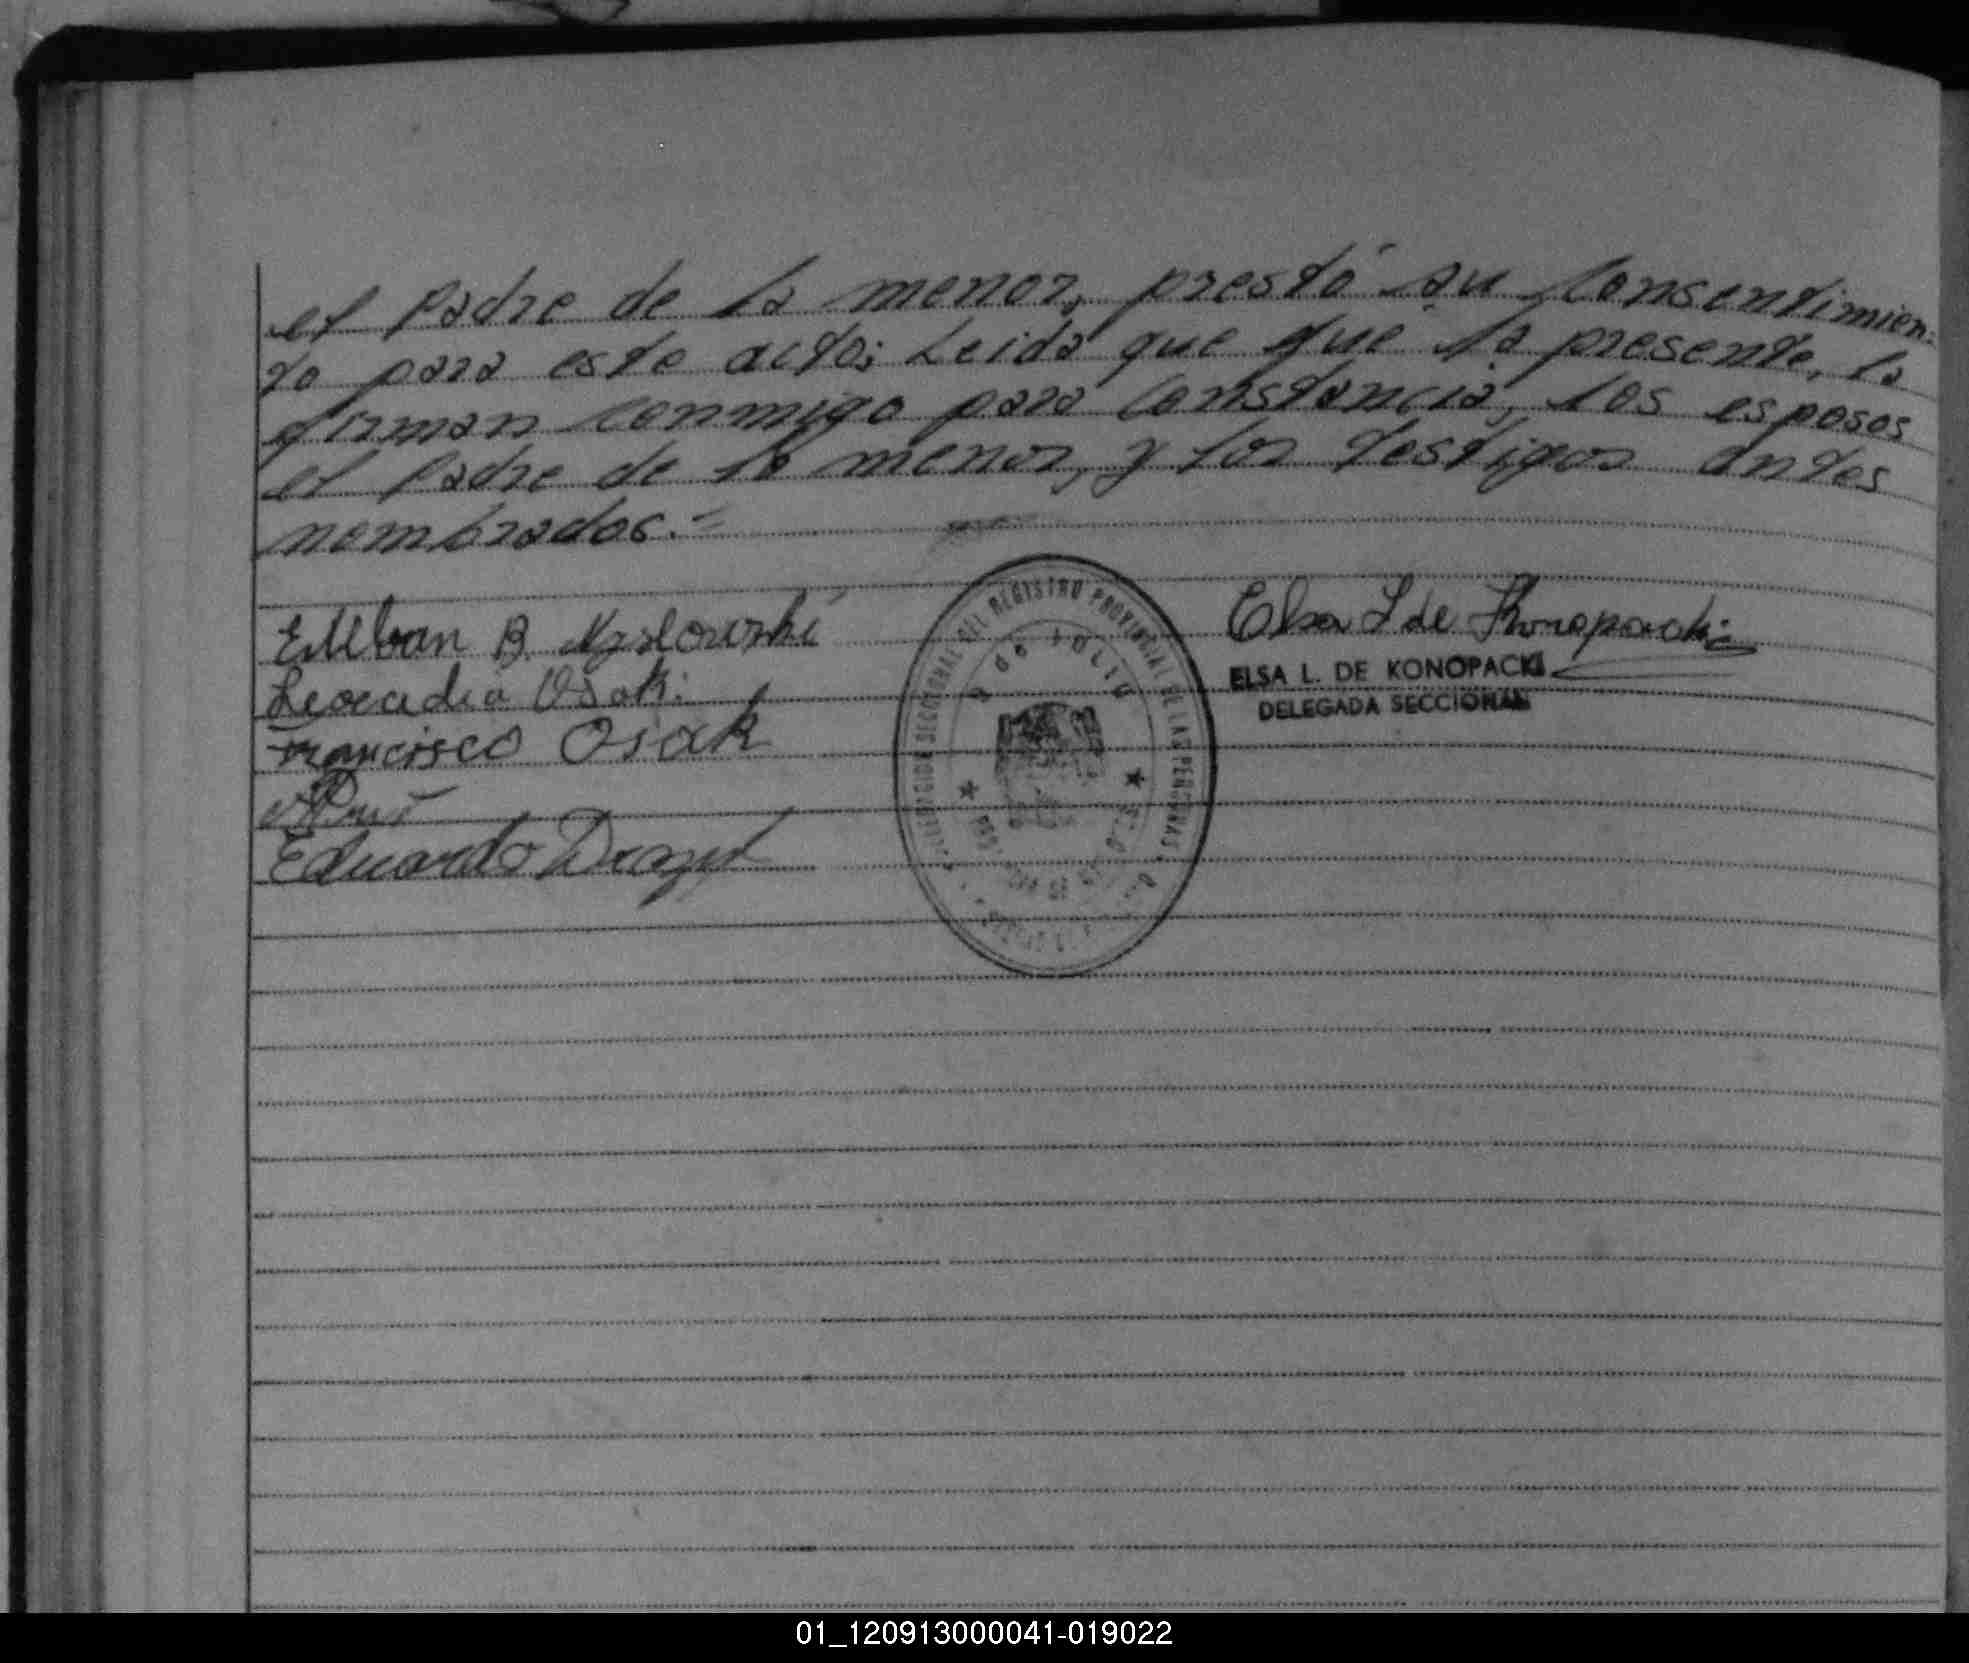 el Padre de la menor, prestó su Consentimien-
to para este acto; Leida que fue la presente, la
firman conmigo para Constancia, los esposos
el Padre de la menor, y los testigos antes
nombrados.=
Esteban B.
Leocadia Osak.
Francisco Osak
Eduardo
Elsa L de Konopacki
ELSA L. DE KONOPACKI
DELEGADA SECCIONAL
SECCIONAL DEL REGISTRO PROVINCIAL DE LAS PERSONAS
01_120913000041-019022